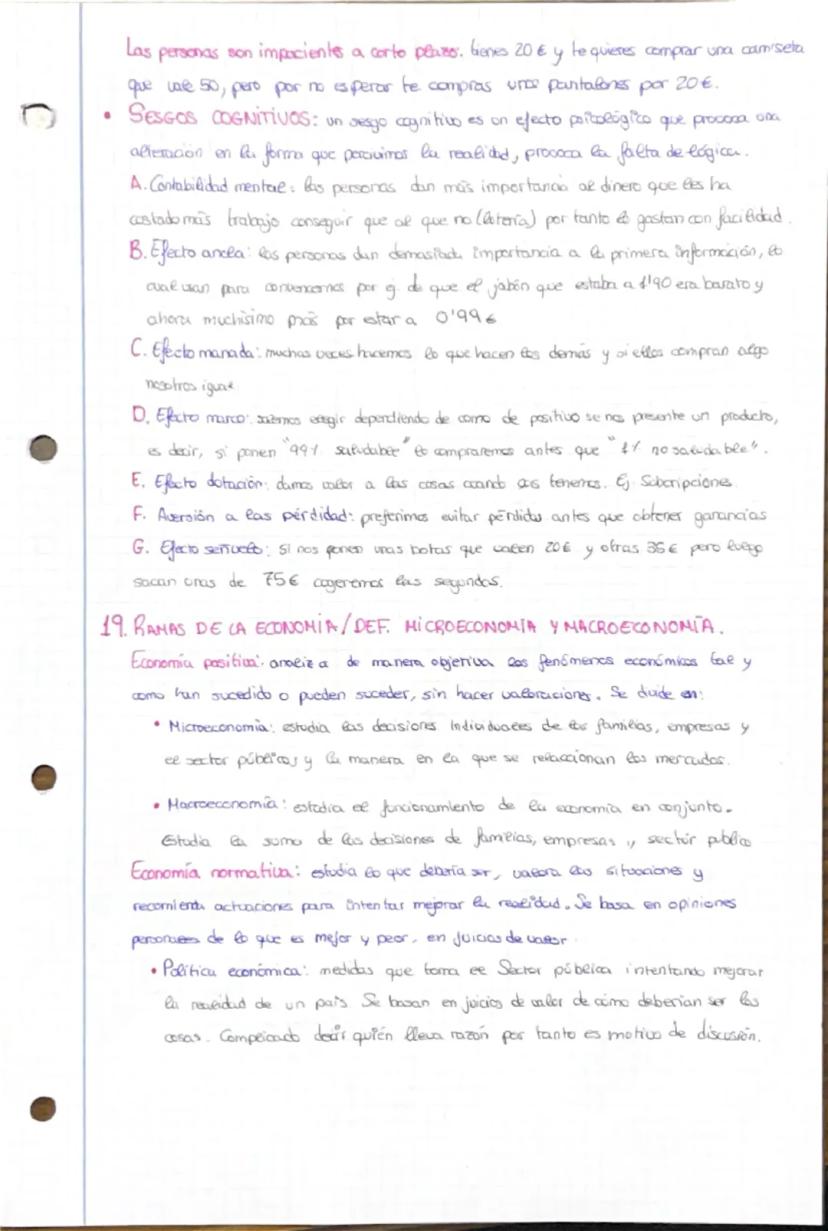 Las personas son impacientes a corto plazo. tienes 20 € y te quieres comprar una camiseta
que vale 50, pero por no esperar te compras unos pantalones por 20 €.
• SESGOS COGNITIVOS: un sesgo cognitivo es un efecto psicológico que provoca una
alteración en la forma que percivimos la realidad, provoca la falta de lógica.
A. Contabilidad mental: las personas dan más importancia al dinero que les ha
costado más trabajo conseguir que al que no (lotería) por tanto lo gastan con facilidad.
B. Efecto ancla: las personas dan demasiada importancia a la primera información, lo
cual usan para convencernos por ej. de que el jabón que estaba a 1'90 era barato y
ahora muchísimo más por estar a 0'99 €
C. Efecto manada: muchas veces hacemos lo que hacen los demás y si ellos compran algo
nosotros igual
D. Efecto marco: solemos elegir dependiendo de como de positivo se nos presente un producto,
es decir, si ponen "99% saludable" lo compraremos antes que "1% no saludable".
E. Efecto dotación: damos valor a las cosas cuando las tenemos. Ej Subcripciones
F. Aversión a las pérdidad: preferimos evitar pérdidas antes que obtener ganancias
G. Efecto señuelo: Si nos ponen unas botas que valen 20€ y otras 35€ pero luego
sacan unas de 75€ cogeremos las segundas.
19. RAMAS DE LA ECONOMÍA/DEF. MICROECONOMÍA Y MACROECONOMÍA.
Economía positiva: analiza de manera objetiva los fenómenos económicos tal y
como han sucedido o pueden suceder, sin hacer valoraciones. Se divide en:
• Microeconomía: estudia las decisiones individuales de las familias, empresas y
el sector públicos y la manera en la que se relaccionan los mercados.
• Macroeconomía: estudia el funcionamiento de la economía en conjunto.
Estudia la suma de las decisiones de familias, empresas y sector público
Economía normativa: estudia lo que debería ser, valora las situaciones y
recomienda actuaciones para intentar mejorar la realidad. Se basa en opiniones
personales de lo que es mejor y peor, en juicios de valor.
• Política económica: medidas que toma el Sector público intentando mejorar
la realidad de un país Se basan en juicios de valor de cómo deberían ser las
cosas. Complicado decir quién lleva razón por tanto es motivo de discusión.